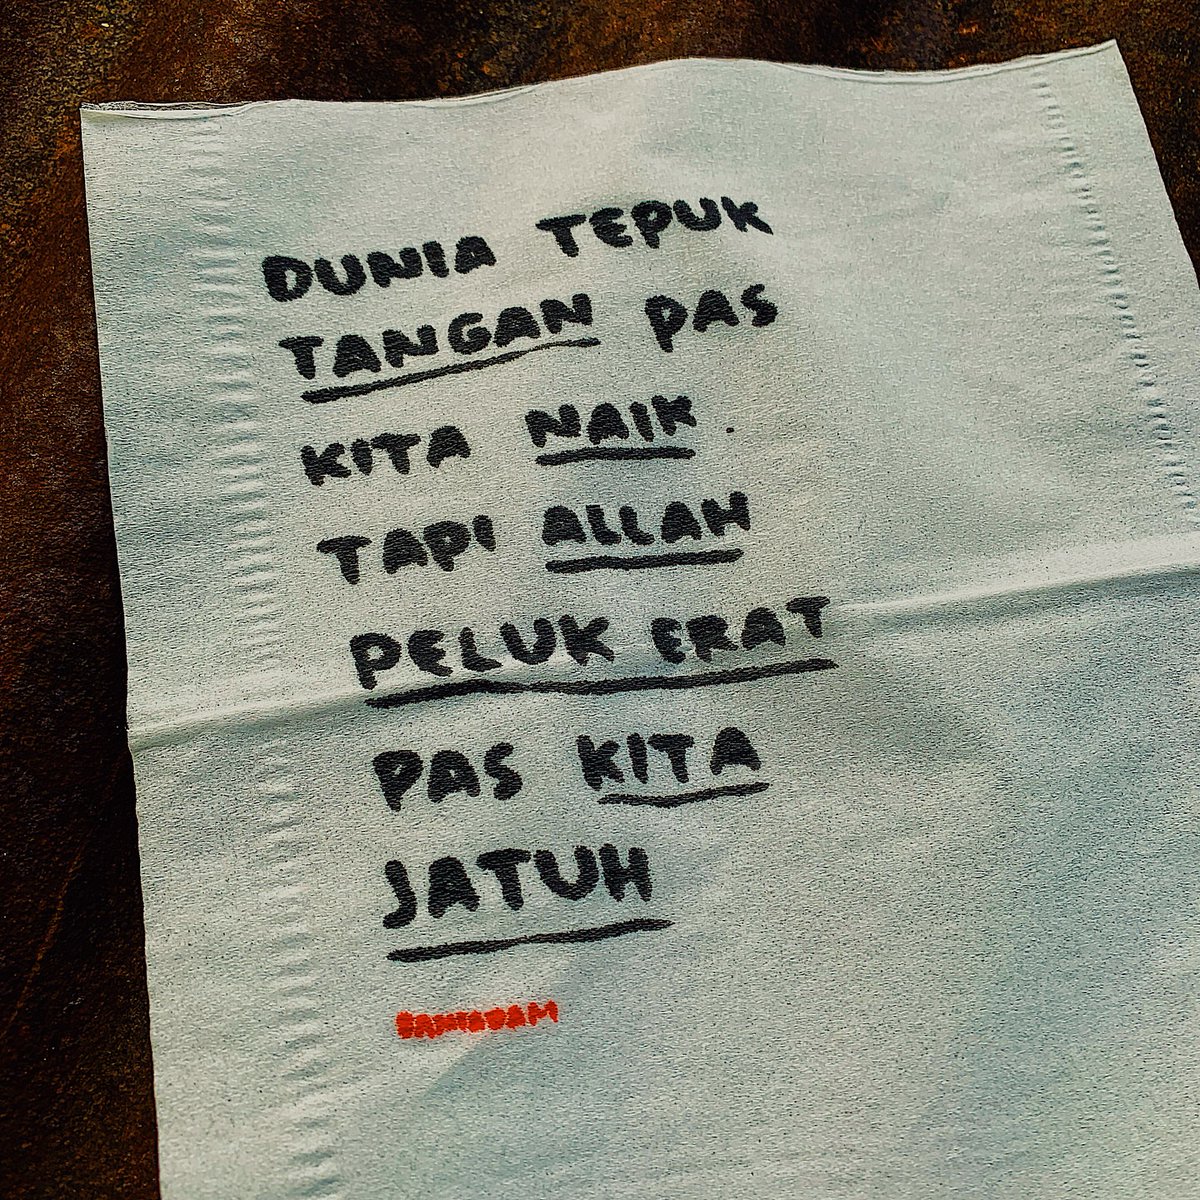 DUNIA TEPUK
TANGAN PAS
KITA NAIK
TAPI ALLAH
PELUK ERAT
PAS KITA
JATUH